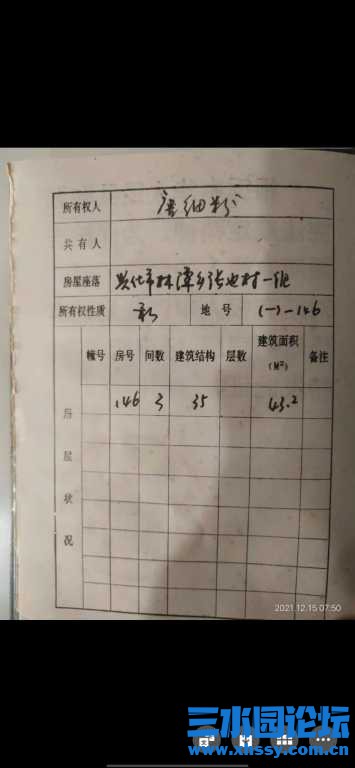 所有权人 唐细粉
共有人
房屋座落 兴化市林潭乡 村一组
所有权性质 私 地号 (一)-146
幢号 房号 间数 建筑结构 层数 建筑面积(M²) 备注
146 3 35 43.2
房屋状况
2021.12.15 07:50
三水园论坛
www.xhssy.com.cn